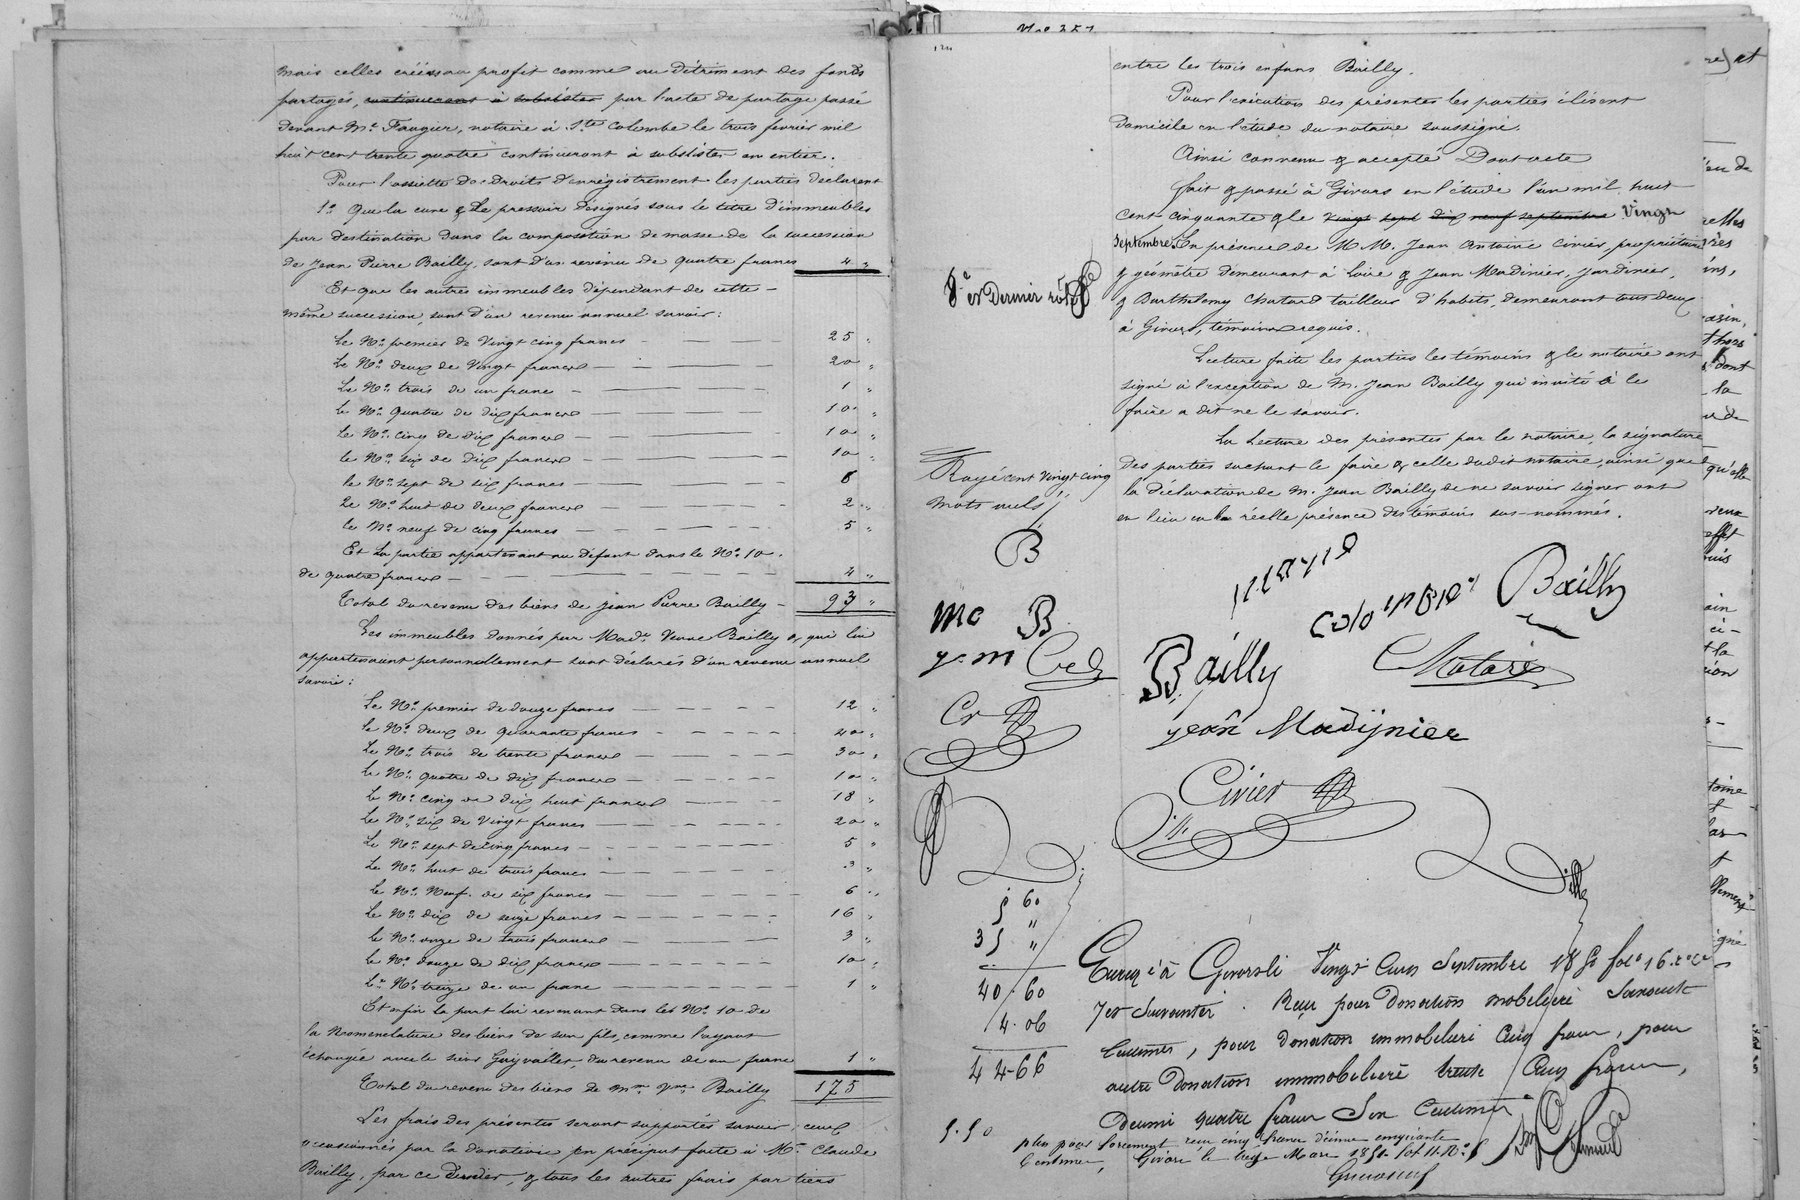 mais celles créées au profit comme au détriment des fonds
partagés, continueront à subsister par l'acte de partage passé
devant Me Faugier, notaire à Ste Colombe le trois fevrier mil
huit cent trente quatre continueront à subsister en entier.
Pour l'assiette des droits d'enregistrement les parties declarent
1o Que la cuve & le pressoir désignés sous le titre d'immeubles
par destination dans la composition de masse de la succession
de Jean Pierre Bailly, sont d'un revenu de quatre francs 4 "
Et que les autres immeubles dépendant de cette
même succession, sont d'un revenu annuel savoir:
Le No. premier de Vingt cinq francs 25 "
Le No. deux de Vingt francs 20 "
Le No. trois de un franc 1 "
Le No. quatre de dix francs 10 "
Le No. cinq de dix francs 10 "
Le No. six de dix francs 10 "
Le No. sept de six francs 6
Le No. huit de deux francs 2 "
Le No. neuf de cinq francs 5 "
Et la partie appartenant au défunt dans le No. 10.
de quatre francs 4 "
Total du revenu des biens de Jean Pierre Bailly 93 "
Les immeubles donnés par Made Veuve Bailly & qui lui
appartenaient personnellement sont déclarés d'un revenu annuel
savoir:
Le No. premier de douze francs 12 "
Le No. deux de quarante francs 40 "
Le No. trois de trente francs 30 "
Le No. quatre de dix francs 10 "
Le No. cinq de dix huit francs 18 "
Le No. six de Vingt francs 20 "
Le No. sept de cinq francs 5 "
Le No. huit de trois francs 3 "
Le No. Neuf de six francs 6 "
Le No. dix de seize francs 16 "
Le No. onze de trois francs 3 "
Le No. douze de dix francs 10 "
Le No. treize de un franc 1 "
Et enfin la part lui revenant dans le No. 10 de
la Nomenclature des biens de son fils, comme l'ayant
échangée avec le sieur Guyvallet, du revenu de un franc 1 "
Total du revenu des biens de Mme Vve Bailly 175
Les frais des présentes seront supportés savoir: ceux
occasionnés par la donation en préciput faite à Mr Claude
Bailly, par ce dernier, & tous les autres frais par tiers
No 257
entre les trois enfans Bailly.
Pour l'exécution des présentes les parties élisent
domicile en l'étude du notaire soussigné.
Ainsi convenu & accepté Dont acte
fait & passé à Givors en l'étude l'an mil huit
cent cinquante & le vingt sept dix neuf septembre Vingt
Septembre. En présence de M M. Jean Antoine Civier, propriétaire
& géomètre demeurant à Loire & Jean Madinier, jardinier,
& Barthelemy Chatard tailleur d'habits, demeurant tous deux
à Givors, témoins requis.
8e et Dernier rôle
Lecture faite les parties les témoins & le notaire ont
signé à l'exception de M. Jean Bailly qui invité à le
faire a dit ne le savoir.
La lecture des présentes par le notaire, la signature
des parties sachant le faire & celle dudit notaire, ainsi que
la déclaration de M. Jean Bailly de ne savoir signer ont
eu lieu en la réelle présence des témoins sus-nommés.
Rayé cent vingt cinq
mots nuls
B
Bailly
mc B
y. m
Bailly
jean Madijnier
Cr
Civier
5 60
"
35 "
40 60
4 06
44 66
Enregé à Givors le Vingt Cinq Septembre 1850 fol 16
et suivantes. Reçu pour donation mobilière Soixante
Centimes, pour donation immobilière Cinq francs, pour
autre donation immobilière trente Cinq francs,
Décime quatre francs Six Centimes
5.50
plus pour forcement reçu cinq francs décime cinquante
Centimes, Givors le treize Mars 1851